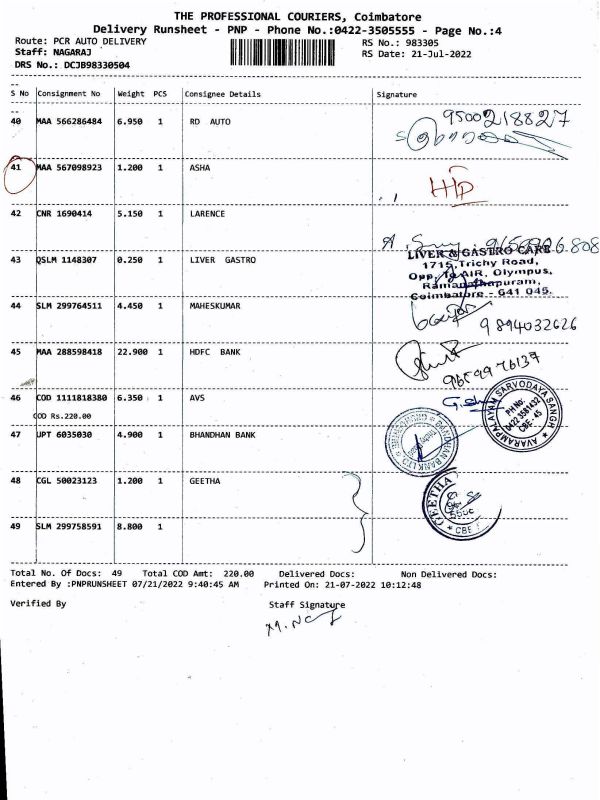 THE PROFESSIONAL COURIERS, Coimbatore
Delivery Runsheet - PNP - Phone No.:0422-3505555 - Page No.:4
Route: PCR AUTO DELIVERY RS No.: 983305
Staff: NAGARAJ RS Date: 21-Jul-2022
DRS No.: DCJB98330504
S No Consignment No Weight PCS Consignee Details Signature
40 MAA 566286484 6.950 1 RD AUTO 9500218827
41 MAA 567098923 1.200 1 ASHA
42 CNR 1690414 5.150 1 LARENCE
43 QSLM 1148307 0.250 1 LIVER GASTRO LIVER & GASTRO CARE
1715, Trichy Road,
Opp. to AIR, Olympus,
Ramanathapuram,
Coimbatore - 641 045.
44 SLM 299764511 4.450 1 MAHESKUMAR 9894032626
45 MAA 288598418 22.900 1 HDFC BANK 9659976137
46 COD 1111818380 6.350 1 AVS
COD Rs.220.00
AVARAMPALAYAM SARVODAYA SANGH
PH No:
0422 3581432
CBE-45
47 UPT 6035030 4.900 1 BHANDHAN BANK BANDHAN BANK LTD
48 CGL 50023123 1.200 1 GEETHA GEETHA
CBE
49 SLM 299758591 8.800 1
Total No. Of Docs: 49 Total COD Amt: 220.00 Delivered Docs: Non Delivered Docs:
Entered By :PNPRUNSHEET 07/21/2022 9:40:45 AM Printed On: 21-07-2022 10:12:48
Verified By Staff Signature